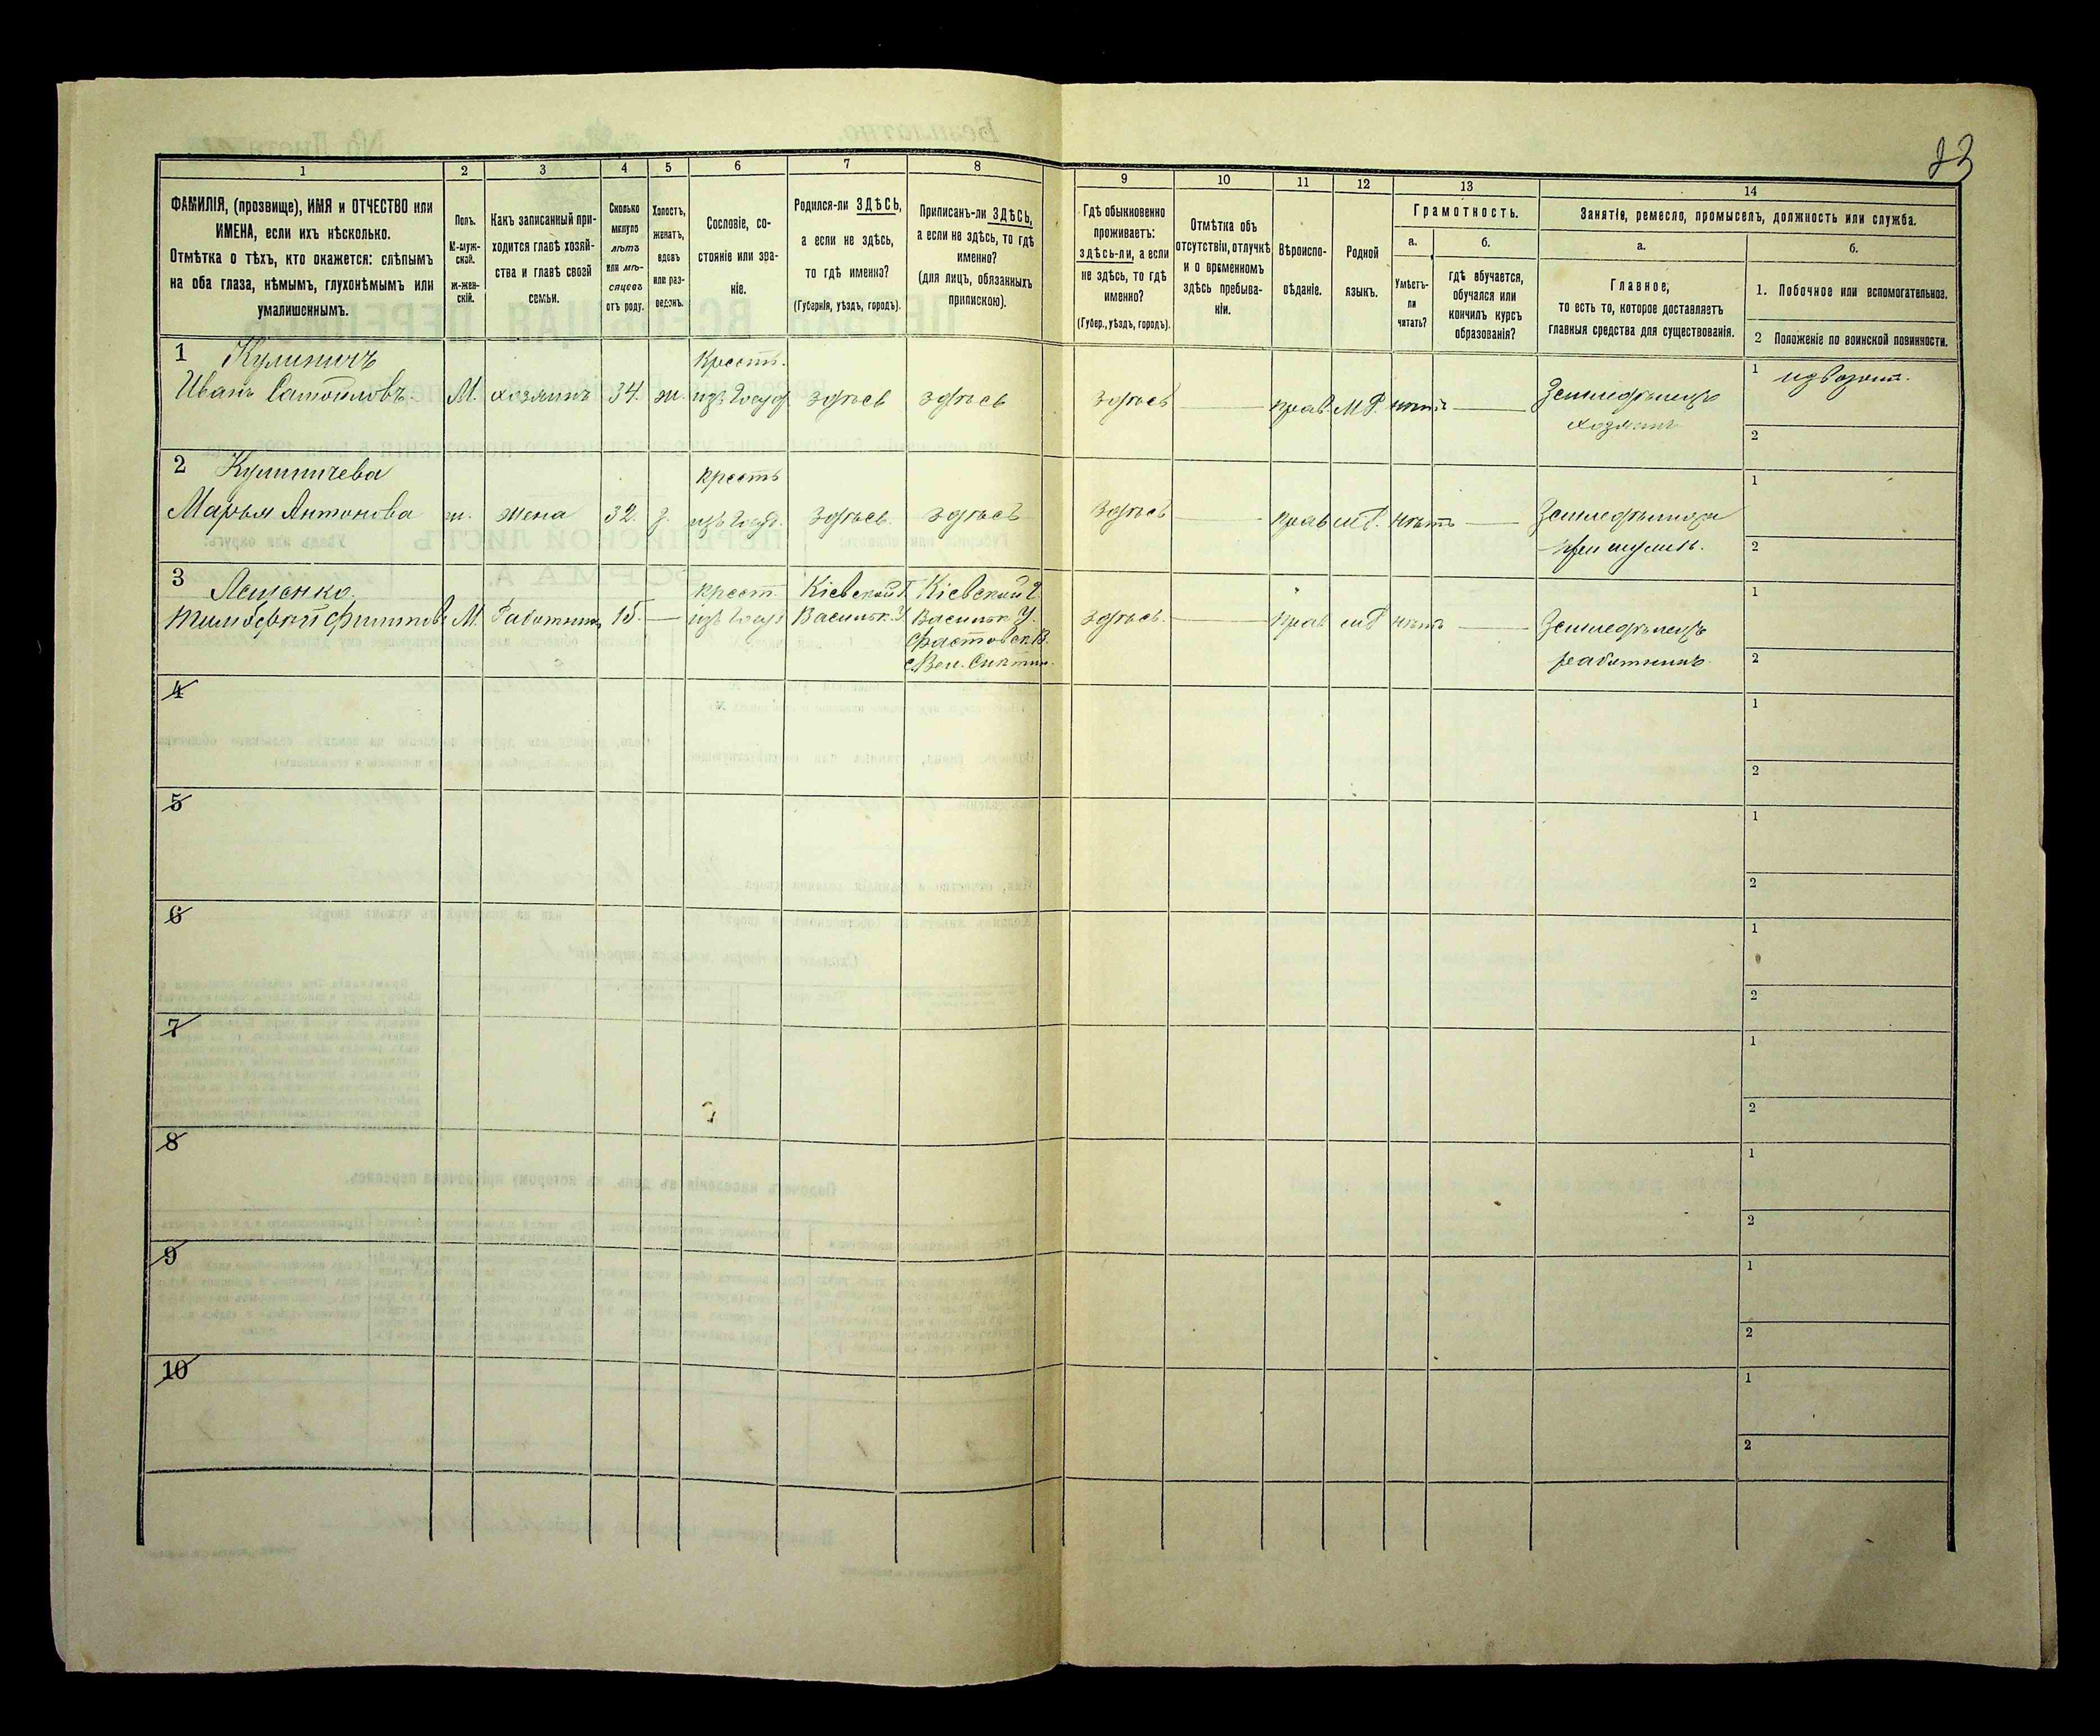 23
1
2
3
4
5
6
7
8
9
10
11
12
13
14
ФАМИЛІЯ, (прозвище), ИМЯ и ОТЧЕСТВО или
ИМЕНА, если ихъ нѣсколько.
Отмѣтка о тѣхъ, кто окажется: слѣпымъ
на оба глаза, нѣмымъ, глухонѣмымъ или
умалишеннымъ.
Полъ.
М-муж-
ской.
Ж-жен-
скій.
Какъ записанный при-
ходится главѣ хозяй-
ства и главѣ своей
семьи.
Сколько
минуло
лѣтъ
или мѣ-
сяцевъ
отъ роду.
Холостъ,
женатъ,
вдовъ
или раз-
веденъ.
Сословіе, со-
стояніе или зва-
ніе.
Родился-ли ЗДѢСЬ,
а если не здѣсь,
то гдѣ именно?
(Губернія, уѣздъ, городъ).
Приписанъ-ли ЗДѢСЬ,
а если не здѣсь, то гдѣ
именно?
(для лицъ, обязанныхъ
припискою).
Гдѣ обыкновенно
проживаетъ:
здѣсь-ли, а если
не здѣсь, то гдѣ
именно?
(Губер., уѣздъ, городъ).
Отмѣтка объ
отсутствіи, отлучкѣ
и о временномъ
здѣсь пребыва-
ніи.
Вѣроиспо-
вѣданіе.
Родной
языкъ.
Грамотность.
а.
Умѣетъ-
ли
читать?
б.
гдѣ обучается,
обучался или
кончилъ курсъ
образованія?
Занятіе, ремесло, промыселъ, должность или служба.
а.
Главное,
то есть то, которое доставляетъ
главныя средства для существованія.
б.
1. Побочное или вспомогательное.
2 Положеніе по воинской повинности.
1 Кулиничъ
Иванъ Самойловъ М. хозяинъ 34. ж. Крест. изъ Госуд. здѣсь здѣсь здѣсь — прав. М.Р. нѣтъ — Земледѣлецъ
хозяинъ
1 извозн.
2
2 Кулиничева
Марья Антонова ж. жена 32. з. крестъ изъ Госуд. здѣсь здѣсь здѣсь — прав м.Р. нѣтъ — Земледѣлица
при мужѣ.
1
2
3 Лещенко.
Тимофей Филиповъ М. Работникъ 15. — крест изъ Госуд Кіевской Г. Кіевской Г.
Васильк. У Васильк У.
Фастовск. В.
с. Вел. Снѣтин. здѣсь. — прав м Р нѣтъ — Земледѣлецъ
работникъ
1
2
4
1
2
5
1
2
6
1
2
7
1
2
8
1
2
9
1
2
10
1
2